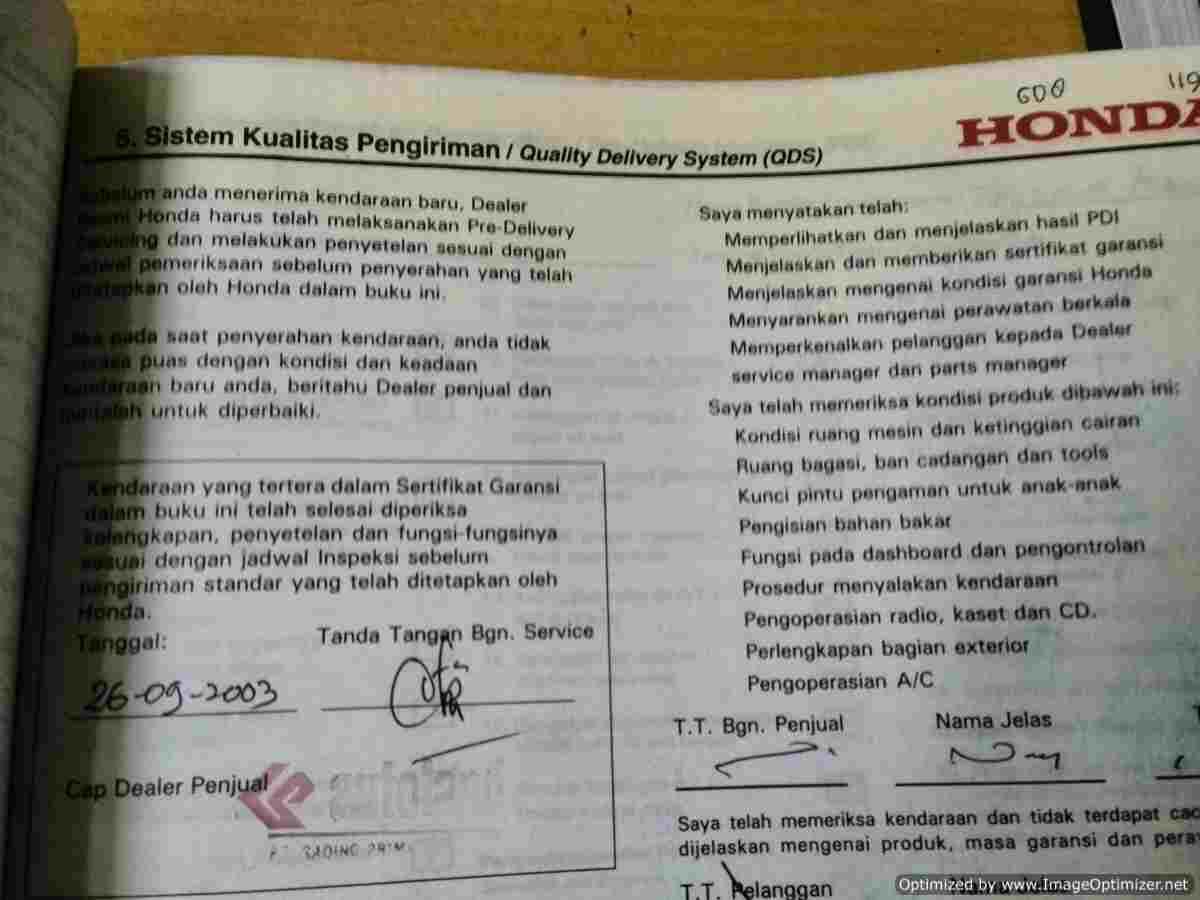 600
119
HONDA
5. Sistem Kualitas Pengiriman / Quality Delivery System (QDS)
Sebelum anda menerima kendaraan baru, Dealer
Resmi Honda harus telah melaksanakan Pre-Delivery
Servicing dan melakukan penyetelan sesuai dengan
jadwal pemeriksaan sebelum penyerahan yang telah
ditetapkan oleh Honda dalam buku ini.
Jika pada saat penyerahan kendaraan, anda tidak
merasa puas dengan kondisi dan keadaan
kendaraan baru anda, beritahu Dealer penjual dan
mintalah untuk diperbaiki.
Kendaraan yang tertera dalam Sertifikat Garansi
dalam buku ini telah selesai diperiksa
kelengkapan, penyetelan dan fungsi-fungsinya
sesuai dengan jadwal Inspeksi sebelum
pengiriman standar yang telah ditetapkan oleh
Honda.
Tanggal: Tanda Tangan Bgn. Service
26-09-2003
Cap Dealer Penjual
Saya menyatakan telah:
Memperlihatkan dan menjelaskan hasil PDI
Menjelaskan dan memberikan sertifikat garansi
Menjelaskan mengenai kondisi garansi Honda
Menyarankan mengenai perawatan berkala
Memperkenalkan pelanggan kepada Dealer
service manager dan parts manager
Saya telah memeriksa kondisi produk dibawah ini:
Kondisi ruang mesin dan ketinggian cairan
Ruang bagasi, ban cadangan dan tools
Kunci pintu pengaman untuk anak-anak
Pengisian bahan bakar
Fungsi pada dashboard dan pengontrolan
Prosedur menyalakan kendaraan
Pengoperasian radio, kaset dan CD.
Perlengkapan bagian exterior
Pengoperasian A/C
T.T. Bgn. Penjual Nama Jelas
Saya telah memeriksa kendaraan dan tidak terdapat
dijelaskan mengenai produk, masa garansi dan
T.T. Pelanggan Nama Jelas
Optimized by www.ImageOptimizer.net